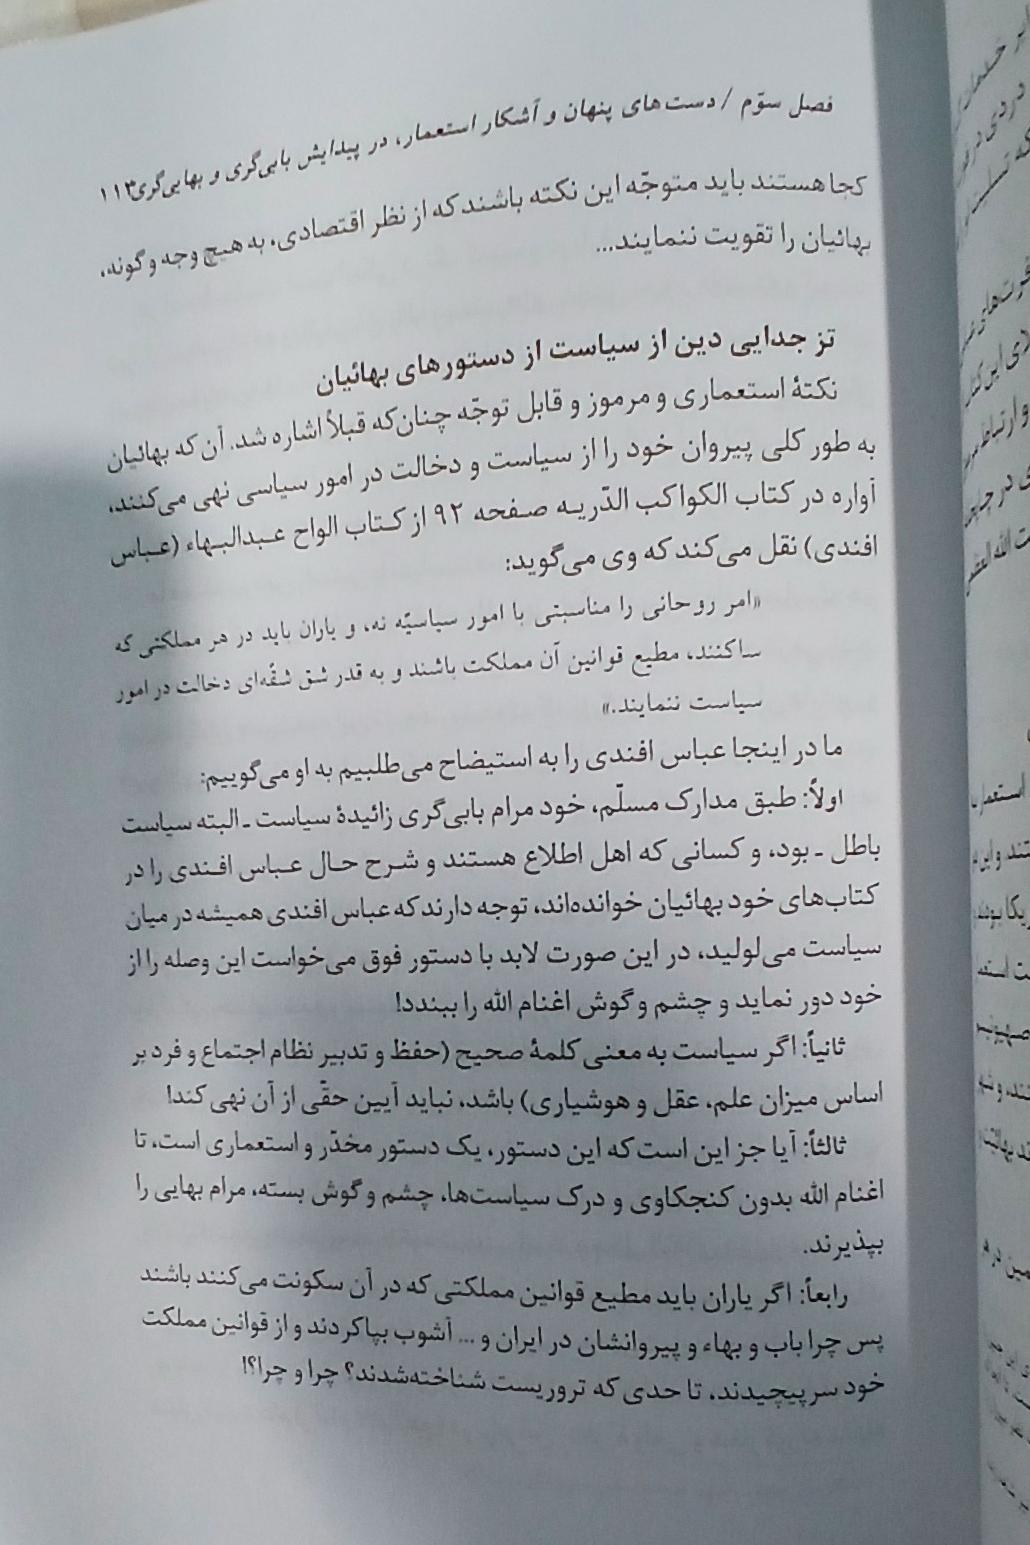 فصل سوّم / دست‌های پنهان و آشکار استعمار، در پیدایش بابی‌گری و بهایی‌گری ۱۱۳
کجا هستند باید متوجّه این نکته باشند که از نظر اقتصادی، به هیچ وجه و گونه،
بهائیان را تقویت ننمایند...
تز جدایی دین از سیاست از دستورهای بهائیان
نکتهٔ استعماری و مرموز و قابل توجّه چنان‌که قبلاً اشاره شد. آن که بهائیان
به طور کلی پیروان خود را از سیاست و دخالت در امور سیاسی نهی می‌کنند،
آواره در کتاب الکواکب الدّریه صفحه ۹۲ از کتاب الواح عبدالبهاء (عباس
افندی) نقل می‌کند که وی می‌گوید:
«امر روحانی را مناسبتی با امور سیاسیّه نه، و یاران باید در هر مملکتی که
ساکنند، مطیع قوانین آن مملکت باشند و به قدر شق شفّه‌ای دخالت در امور
سیاست ننمایند.»
ما در اینجا عباس افندی را به استیضاح می‌طلبیم به او می‌گوییم:
اولاً: طبق مدارک مسلّم، خود مرام بابی‌گری زائیدهٔ سیاست ـ البته سیاست
باطل ـ بود، و کسانی که اهل اطلاع هستند و شرح حال عباس افندی را در
کتاب‌های خود بهائیان خوانده‌اند، توجه دارند که عباس افندی همیشه در میان
سیاست می‌لولید، در این صورت لابد با دستور فوق می‌خواست این وصله را از
خود دور نماید و چشم و گوش اغنام الله را ببندد!
ثانیاً: اگر سیاست به معنی کلمهٔ صحیح (حفظ و تدبیر نظام اجتماع و فرد بر
اساس میزان علم، عقل و هوشیاری) باشد، نباید آیین حقّی از آن نهی کند!
ثالثاً: آیا جز این است که این دستور، یک دستور مخدّر و استعماری است، تا
اغنام الله بدون کنجکاوی و درک سیاست‌ها، چشم و گوش بسته، مرام بهایی را
بپذیرند.
رابعاً: اگر یاران باید مطیع قوانین مملکتی که در آن سکونت می‌کنند باشند
پس چرا باب و بهاء و پیروانشان در ایران و ... آشوب بپا کردند و از قوانین مملکت
خود سرپیچیدند، تا حدی که تروریست شناخته‌شدند؟ چرا و چرا؟!